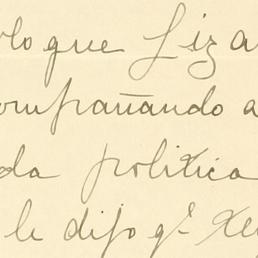 lo que Liza
ompañando a
da politica
le dijo q.e